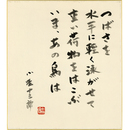 つばさを
水平に軽く泳がせて
重い荷物をはこぶ
いま、あの鳥は